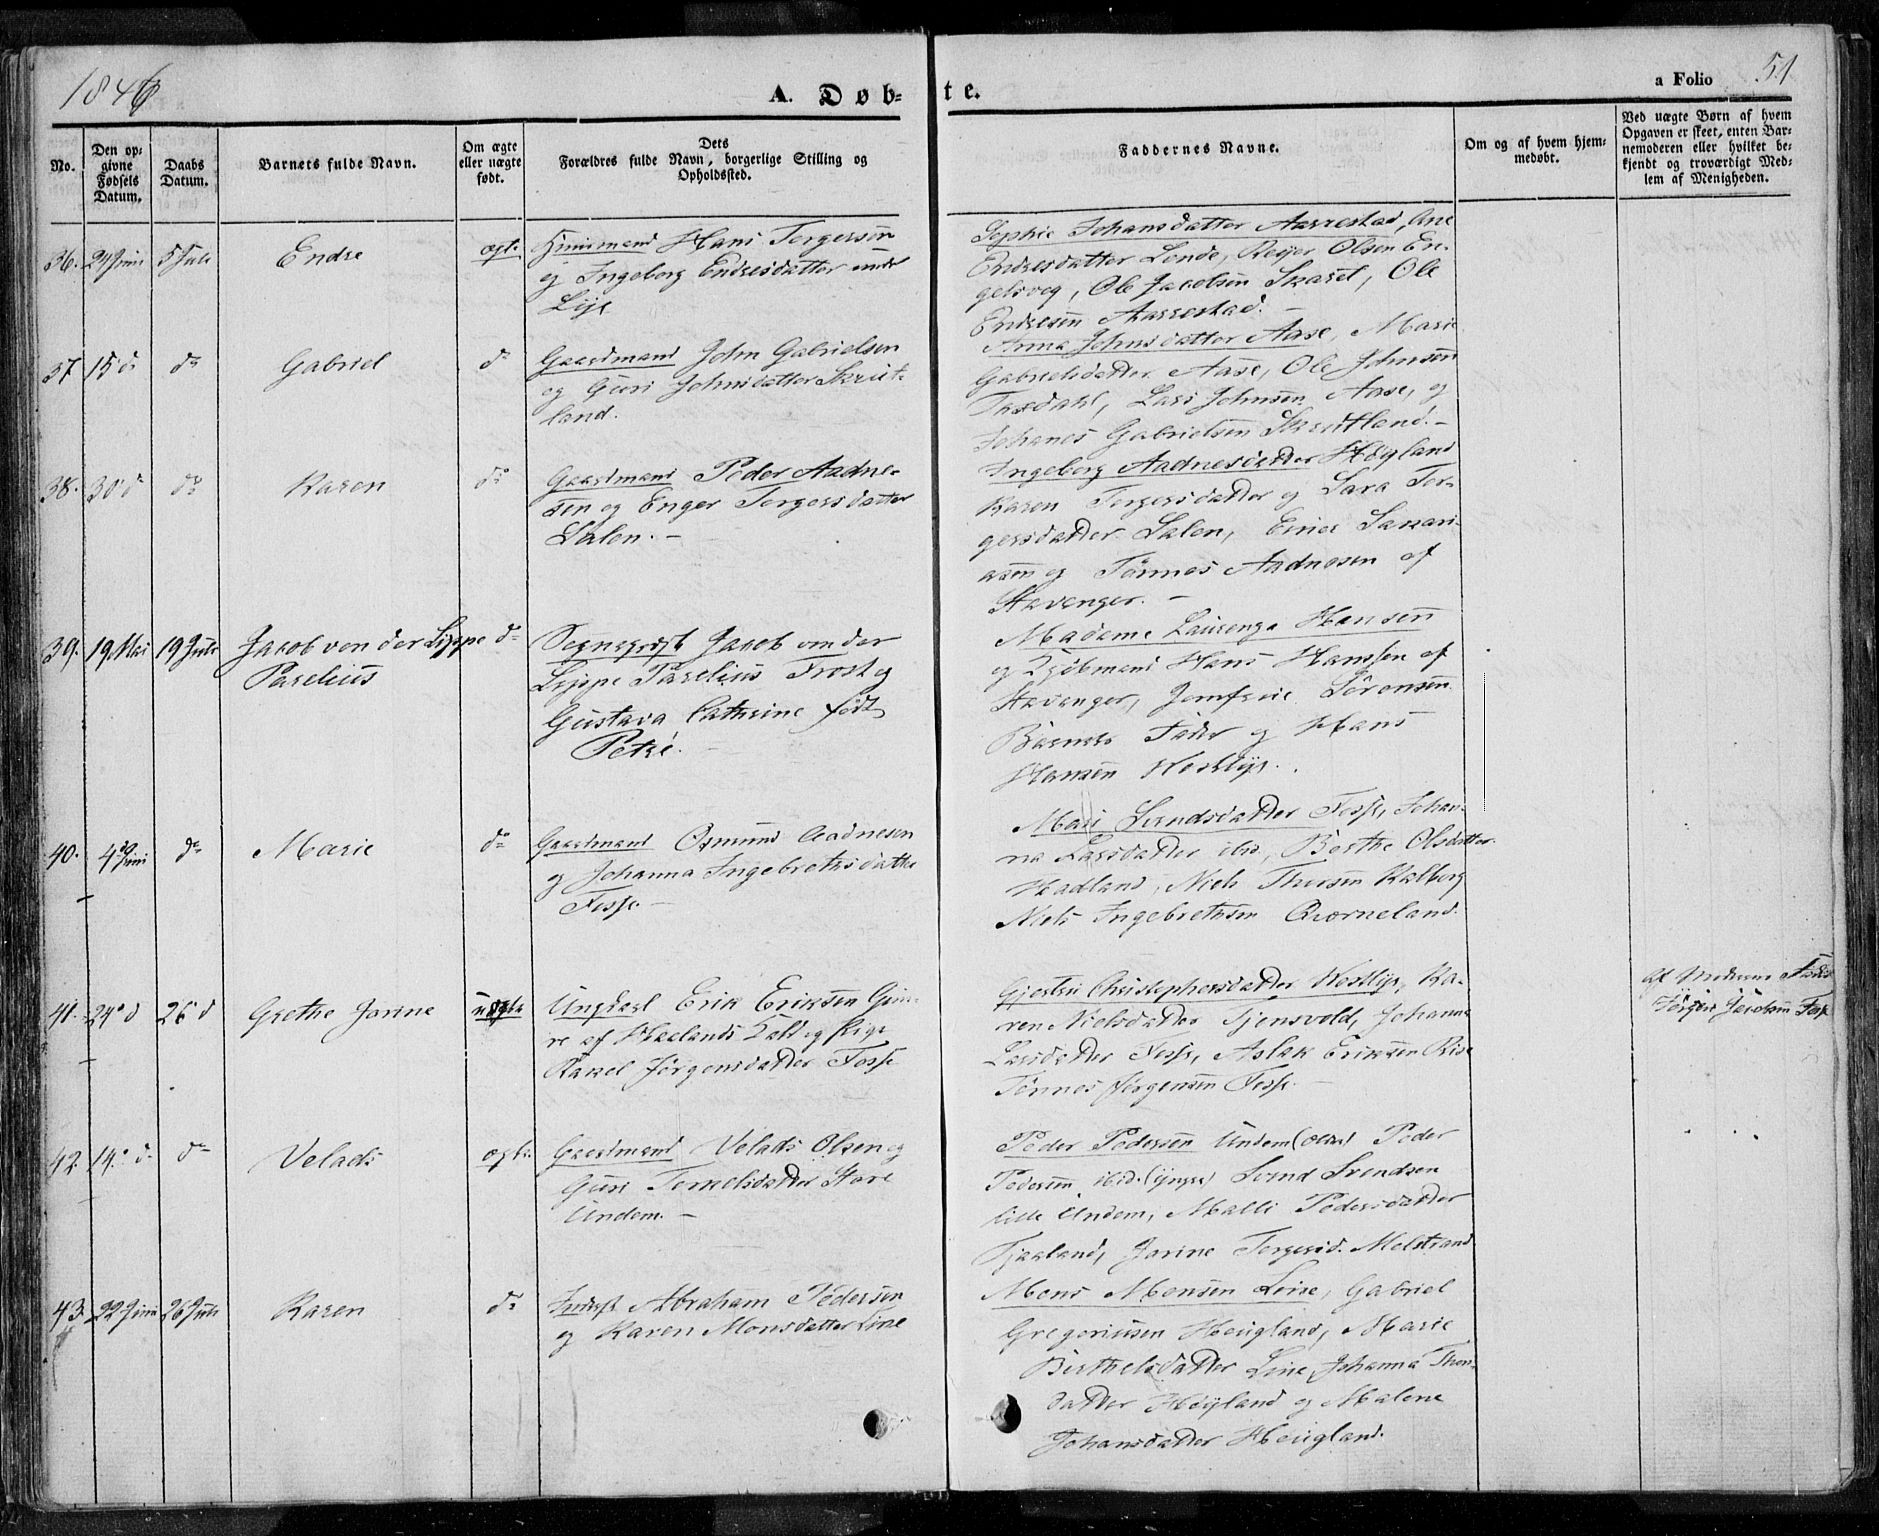 1846
A. Døb-
te.
a Folio 51
No.
Den op-
givne
Fødsels
Datum.
Daabs
Datum.
Barnets fulde Navn.
Om ægte
eller uægte
født.
Dets
Forældres fulde Navn, borgerlige Stilling og
Opholdssted.
Faddernes Navne.
Om og af hvem hjem-
medøbt.
Ved uægte Børn af hvem
Opgaven er skeet, enten Bar-
nemoderen eller hvilket be-
kjendt og troværdigt Med-
lem af Menigheden.
36. 24 Juni 5 Juli Endre ægt. Huusmand Hans Torgersen
og Ingeborg Endresdatter under
Lÿe
Sophie Johansdatter Aarrestad, Ane
Endresdatter Lende, Reÿer Olsen En-
gelsvog, Ole Jacobsen Skaret, Ole
Endresen Aarrestad. -
37. 15 d do Gabriel do Gaardmand John Gabrielsen
og Guri Johnsdatter Skrut-
land.
Anna Johnsdatter Aase, Marie
Gabrielsdatter Aase, Ole Johnsen
Taxdahl, Lars Johnsen Aase, og
Johanes Gabrielsen Skrutland. -
38. 30 d do Karen do Gaardmand Peder Aadne-
sen og Enger Torgersdatter
Lalen. -
Ingeborg Aadnesdatter Høÿland
Karen Torgersdatter og Sara Tor-
gersdatter Lalen, Einer Sakari-
asen og Tönnes Aadnesen af
Stavanger. -
39. 19 Mai 19 Juli Jacob von der Lippe
Parelius do Sognepræst Jacob von der
Lippe Parelius Frost og
Gustava Cathrine født
Petré. -
Madame Laurenza Hansen
og Kjøbmand Hans Hansen af
Stavanger, Jomfrue Sörensen
Barnets Fader og Hans
Hansen Vestlÿe.
40. 4 Juni do Marie do Gaardmand Osmund Aadnesen
og Johanna Ingebrethsdatter
Fosse -
Mari Svendsdatter Fosse, Johan-
na Larsdatter ibid, Berthe Olsdatter
Hadland, Niels Thorsen Kalberg
Niels Ingebrethsen Qværneland.
41. 24 d 26 d Grethe Jorine uægte Ungkarl Erik Eriksen Gim-
re af Haalands Kald og Pige
Rakel Jørgensdatter Fosse
Gjertru Christophersdatter Vestlÿe, Ka-
ren Nielsdatter Tjensvold, Johanna
Larsdatter Fosse, Aslak Eriksen Rise
Tönnes Jørgensen Fosse. -
Af Moderens Fader
Jörgen Jacobsen Fosse
42. 14 d do Velads ægte. Gaardmand Velads Olsen og
Guri Torkelsdatter Store
Undem. -
Peder Pedersen Undem (ældre) Peder
Pedersen ibid. (ÿngre) Svend Svendsen
lille Undem, Malli Pedersdatter
Tjaaland, Jorine Torgersd. Melstrand
43. 22 Juni 26 Juli Karen do Inderst Abraham Pedersen
og Karen Monsdatter Line
Mons Monsen Line, Gabriel
Gregoriusen Høugland, Marie
Berthelsdatter Line, Johanna Thors-
datter Høÿland og Malene
Johansdatter Høugland.